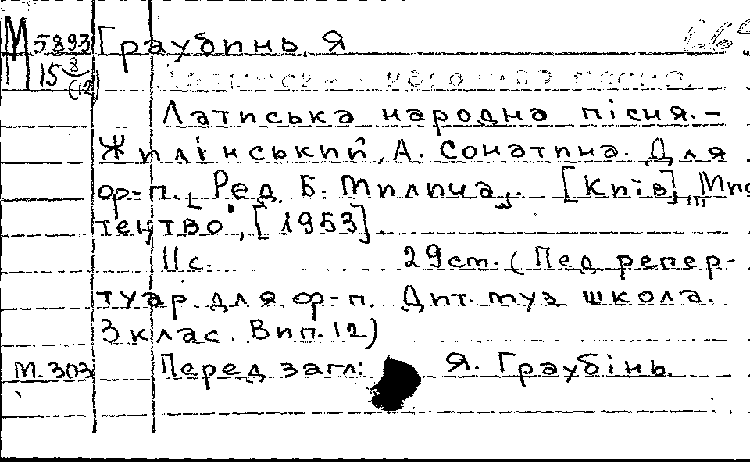 М 5893 Граубинь, Я
15 8 (12)
Латиська народна пісня. –
Жилінський, А. Сонатина. Для
ор-п. [Ред. Б. Милича]. [Київ], "Мис
тецтво", [1953].
11 с. 29 ст. (Пед. репер-
туар для ор-п. Дит. муз школа.
3 клас. Вип. 12)
М. 303 Перед загл: Я. Граубінь.